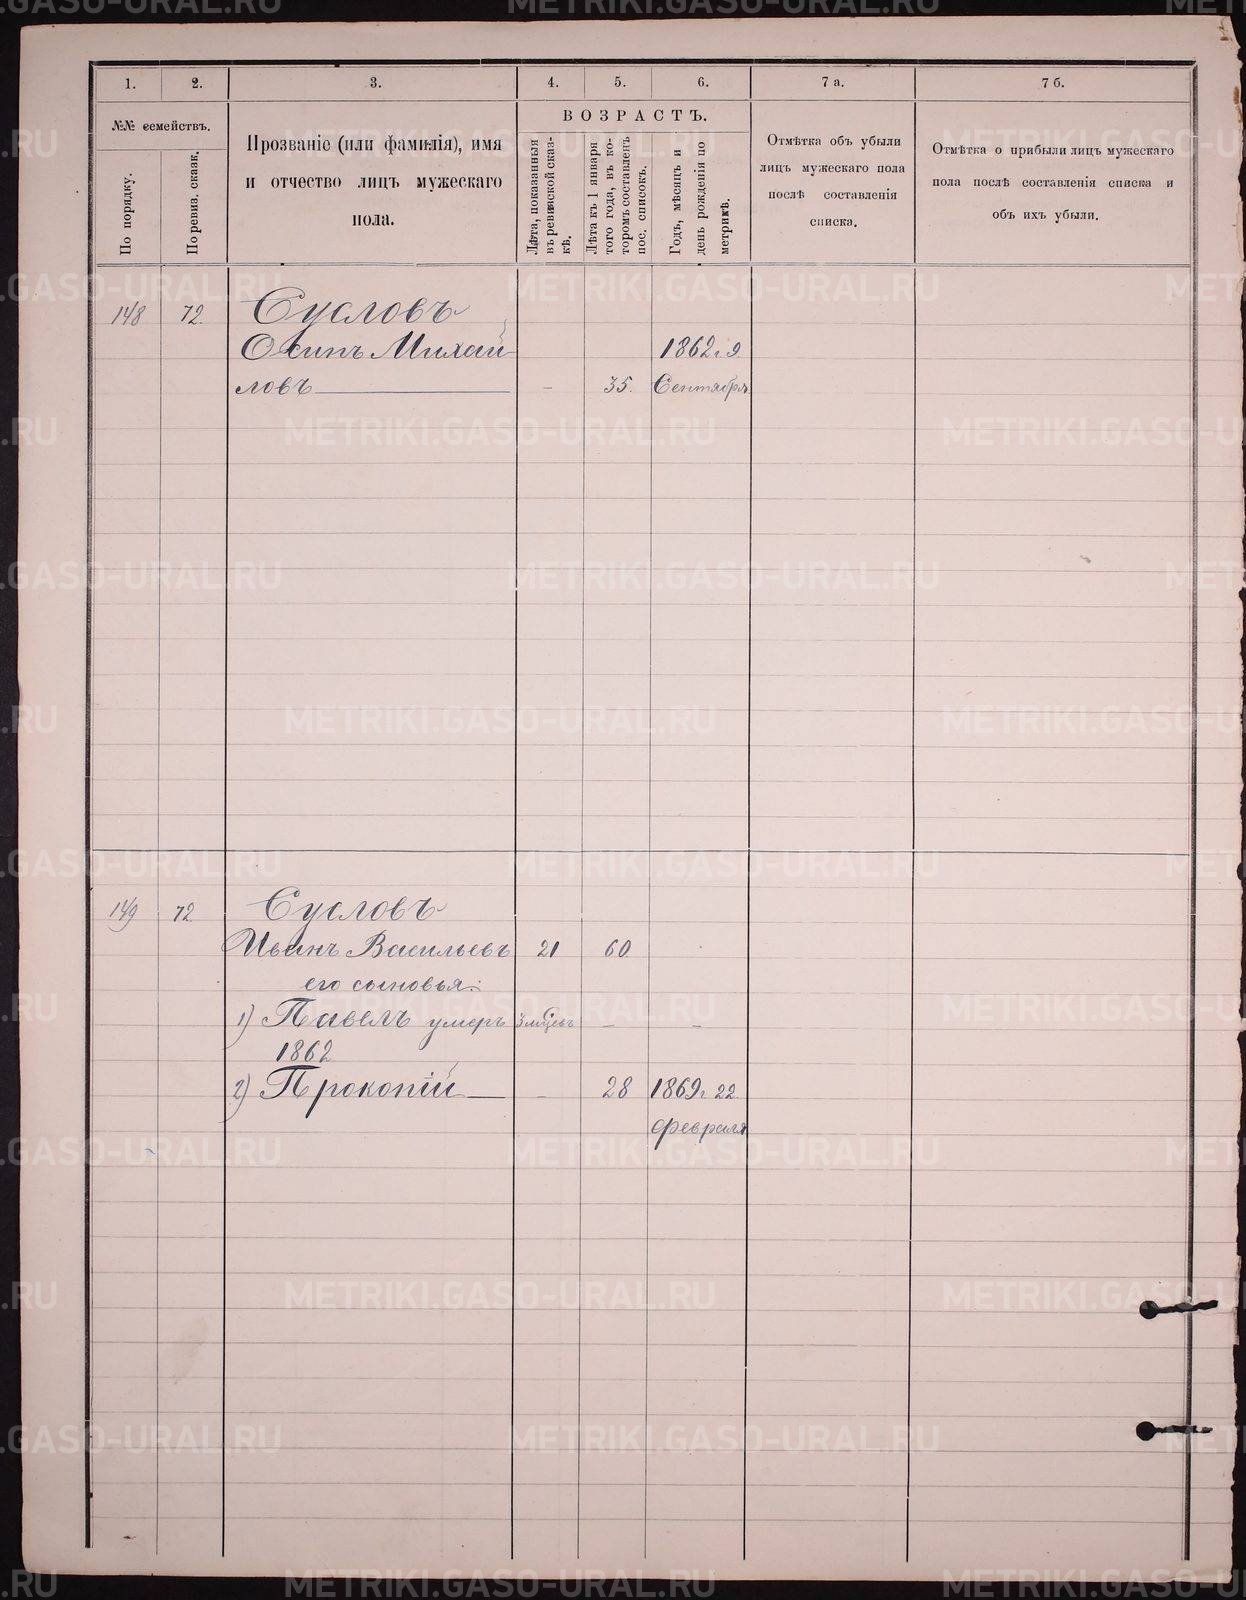 1.
2.
3.
4.
5.
6.
7 а.
7 б.
№№ семействъ.
По порядку.
По ревиз. сказк.
Прозваніе (или фамилія), имя
и отчество лицъ мужескаго
пола.
ВОЗРАСТЪ.
Лѣта, показанныя
въ ревизской сказ-
кѣ.
Лѣта къ 1 января
того года, въ ко-
торомъ составленъ
пос. списокъ.
Годъ, мѣсяцъ и
день рожденія по
метрикѣ.
Отмѣтка объ убыли
лицъ мужескаго пола
послѣ составленія
списка.
Отмѣтка о прибыли лицъ мужескаго
пола послѣ составленія списка и
объ ихъ убыли.
148 72 Сусловъ
Осипъ Михай 1862 г. 9
ловъ — - 35. Сентября
149 72 Сусловъ
Иванъ Васильевъ 21 60
его сыновья:
1) Павелъ умеръ - -
1862
2) Прокопій — - 28 1869 г. 22
февраля
METRIKI.GASO-URAL.RU